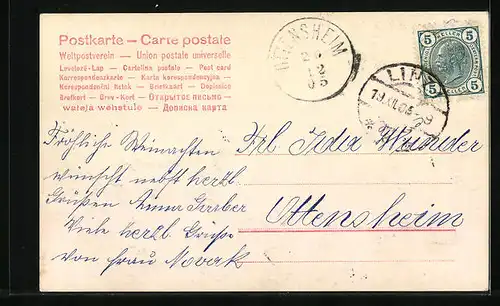 Postkarte – Carte postale
Weltpostverein – Union postale universelle
Levelező-Lap – Cartolina postale – Post card
Korrespondenzkarte – Karta korespondencyjna
Korespondenční lístek – Briefkaart – Dopisnice
Brefkort – Brev-Kort – Открытое письмо
– Дописна карта
OTTENSHEIM
LINZ
5 HELLER 5
5 5
Fröhliche Weinachten
wünscht nebst herzl.
Grüßen Anna Gruber
Viele herzl. Grüße
von Frau Novak
Frl. Ida
Ottensheim